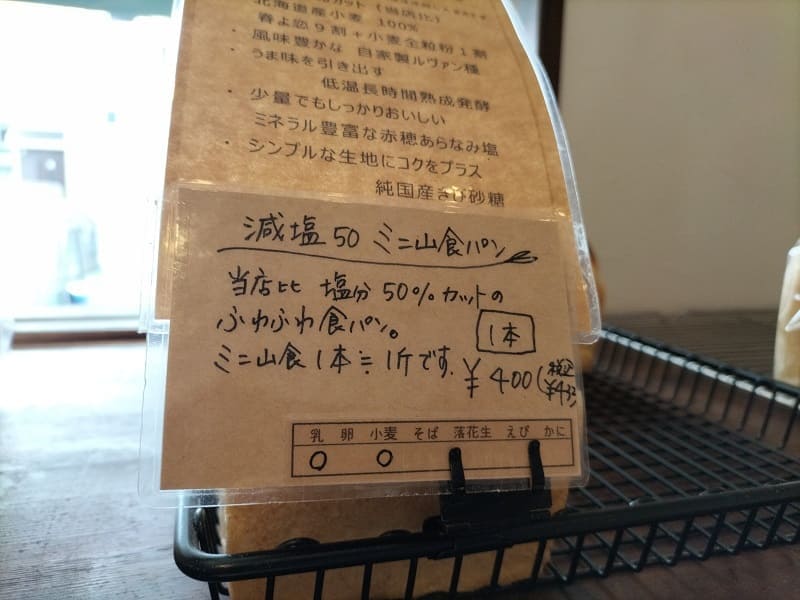 カット(当店比)
北海道産小麦 100%
春よ恋9割+小麦全粒粉1割
・風味豊かな 自家製ルヴァン種
・うま味を引き出す
低温長時間熟成発酵
・少量でもしっかりおいしい
ミネラル豊富な赤穂あらなみ塩
・シンプルな生地にコクをプラス
純国産きび砂糖
減塩50 ミニ山食パン
当店比 塩分50%カットの
ふわふわ食パン。
1本
ミニ山食1本≒1斤です.
¥400(税込¥432)
乳 卵 小麦 そば 落花生 えび かに
○ ○